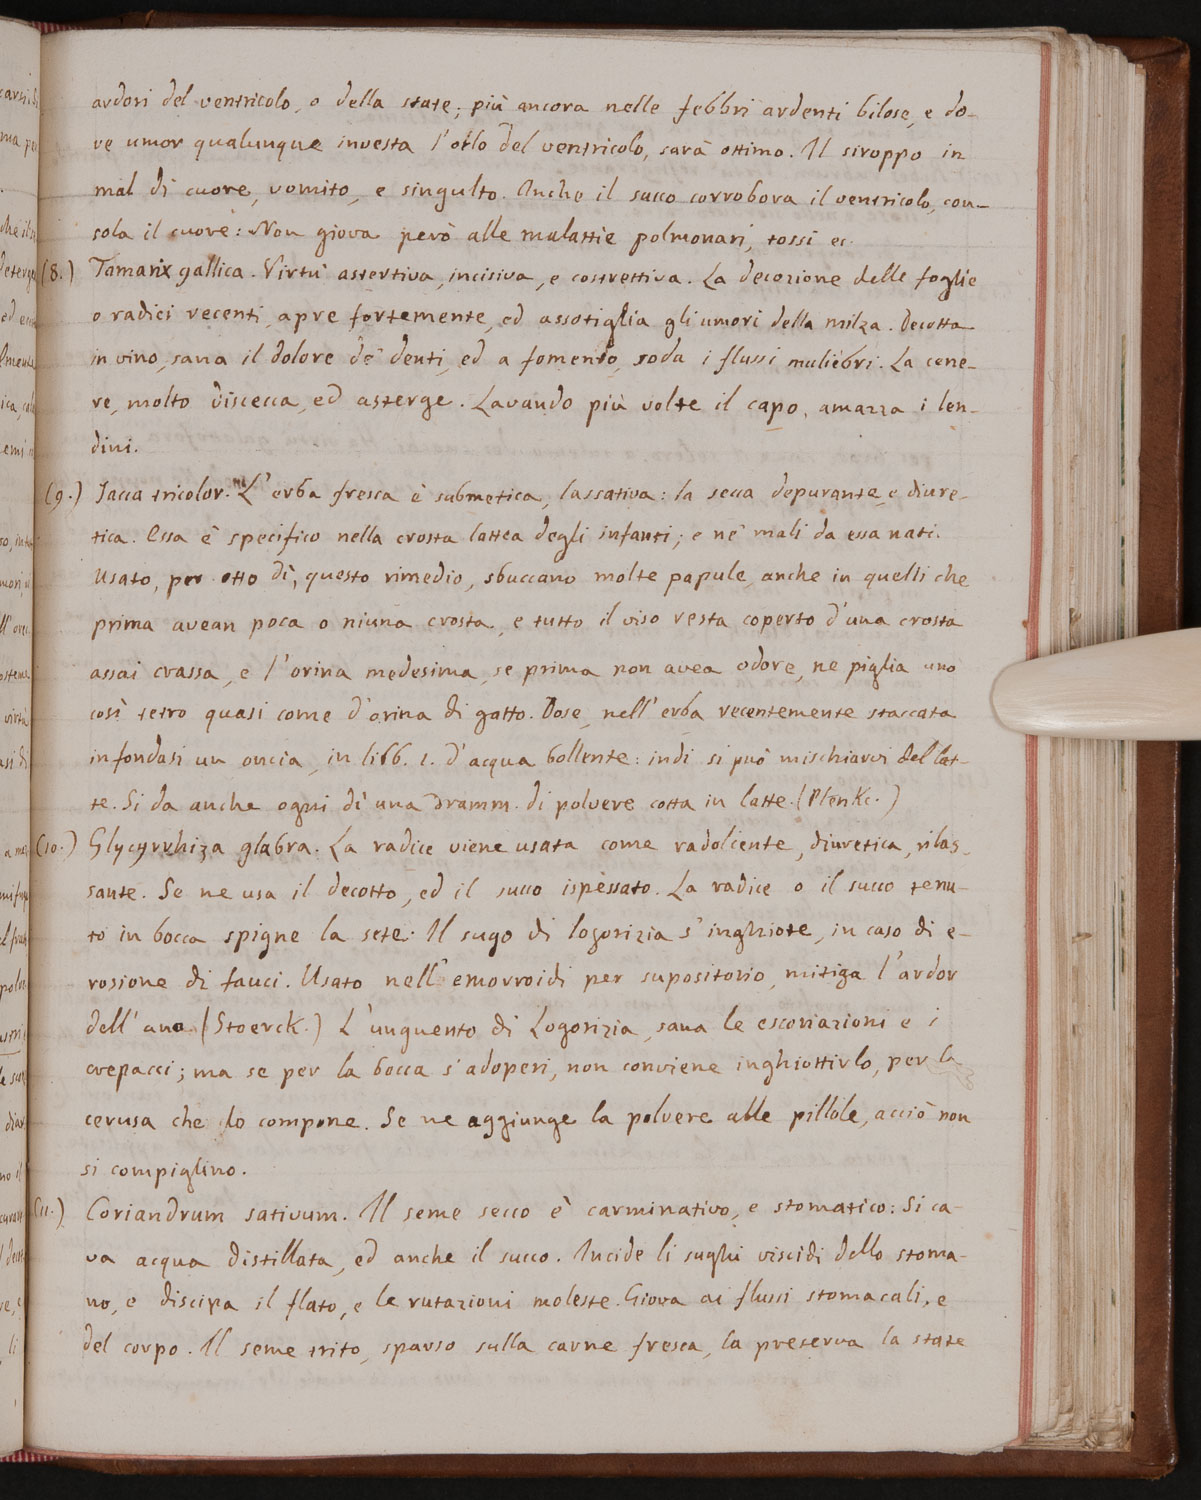 ardori del ventricolo, o della state; più ancora nelle febbri ardenti bilose, e do-
ve umor qualunque investa l'orlo del ventricolo, sarà ottimo. Il siroppo in
mal di cuore, vomito, e singulto. Anche il succo corrobora il ventricolo, con-
sola il cuore: Non giova però alle malattie polmonari, tossi ec.
(8.) Tamarix gallica. Virtù astertiva, incisiva, e costrettiva. La decozione delle foglie
o radici recenti, apre fortemente, ed assotiglia gli umori della milza. Decotta
in vino, sana il dolore de' denti, ed a fomento, soda i flussi muliebri. La cene-
re, molto discecca, ed asterge. Lavando più volte il capo, amazza i len-
dini.
(9.) Jacca tricolor. L'erba fresca è submetica, lassativa: la secca depurante, e diure-
tica. Essa è specifico nella crosta lattea degli infanti; e ne' mali da essa nati.
Usato, per otto dì, questo rimedio, sbuccano molte papule, anche in quelli che
prima avean poca o niuna crosta, e tutto il viso resta coperto d'una crosta
assai crassa, e l'orina medesima, se prima non avea odore, ne piglia uno
così tetro quasi come d'orina di gatto. Dose, nell'erba recentemente staccata
infondasi un oncia, in libb. 1. d'acqua bollente: indi si può mischiarvi del lat-
te. Si da anche ogni dì una dramm. di polvere cotta in latte. (Plenk.)
(10.) Glycyrrhiza glabra. La radice viene usata come radolcente, diuretica, rilas-
sante. Se ne usa il decotto, ed il succo ispessato. La radice o il succo tenu-
to in bocca spigne la sete. Il sugo di logorizia s'inghiote, in caso di e-
rosione di fauci. Usato nell'emorroidi per supositorio, mitiga l'ardor
dell'ano (Stoerck.) L'unguento di Logorizia, sana le escoriazioni e i
crepacci; ma se per la bocca s'adoperi, non conviene inghiottirlo, per la
cerusa che lo compone. Se ne aggiunge la polvere alle pillole, acciò non
si compiglino.
(11.) Coriandrum sativum. Il seme secco è carminativo, e stomatico: Si ca-
va acqua distillata, ed anche il succo. Incide li sughi viscidi dello stoma-
no, e discipa il flato, e le rutazioni moleste. Giova ai flussi stomacali, e
del corpo. Il seme trito, sparso sulla carne fresca, la preserva la state